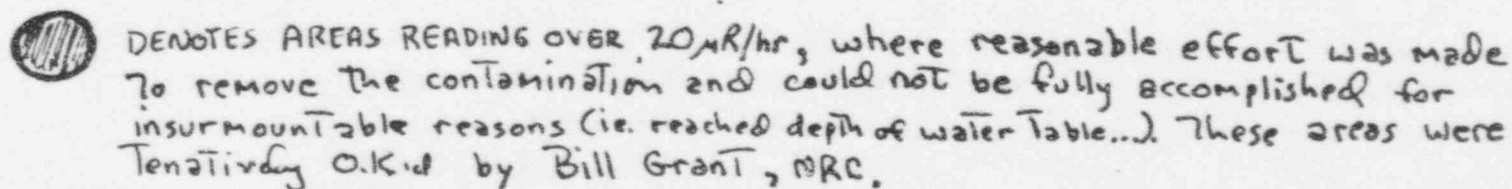 DENOTES AREAS READING OVER 20μR/hr, where reasonable effort was made
To remove the contamination and could not be fully accomplished for
insurmountable reasons (ie. reached depth of water Table...). These areas were
Tenatively O.K.d by Bill Grant, NRC.